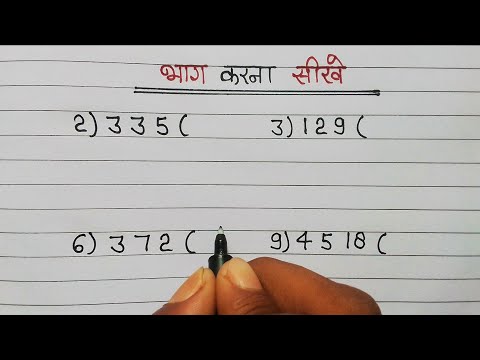 भाग करना सीखे
2) 335 ( 3) 129 (
6) 372 ( 9) 4518 (